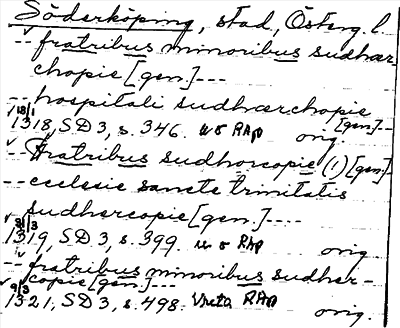 Söderköping, stad, Österg. l.
-- fratribus minoribus sudhær
chopie [gen.] ---
-- hospitali sudhærchopie
[gen.] --
18/1
1318, SD 3, s. 346. RAp orig.
-- fratribus sudhorcopie (!) [gen.]
-- ecclesie sancte trinitatis
sudhercopie [gen.] ----
1319, SD 3, s. 399. RAp orig.
-- fratribus minoribus sudher-
copie [gen.] ---
9/3
1321, SD 3, s. 498. Vreta RAp orig.